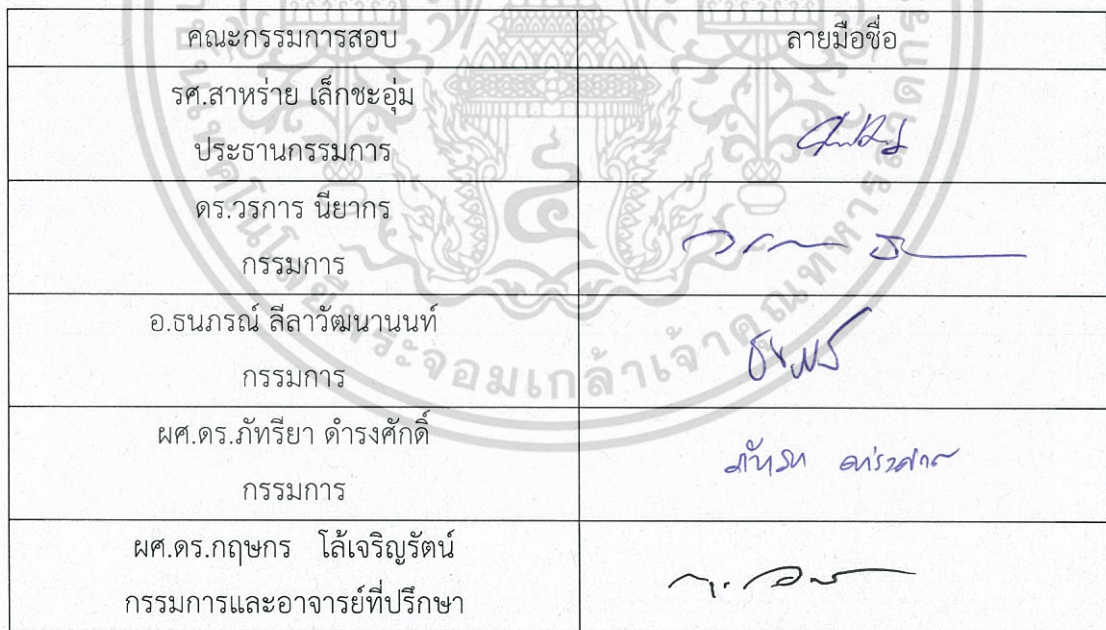 คณะกรรมการสอบ ลายมือชื่อ
รศ.สาหร่าย เล็กชะอุ่ม
ประธานกรรมการ
ดร.วรการ นียากร
กรรมการ
อ.ธนภรณ์ ลีลาวัฒนานนท์
กรรมการ
ผศ.ดร.ภัทรียา ดำรงศักดิ์
กรรมการ
ผศ.ดร.กฤษกร โล้เจริญรัตน์
กรรมการและอาจารย์ที่ปรึกษา